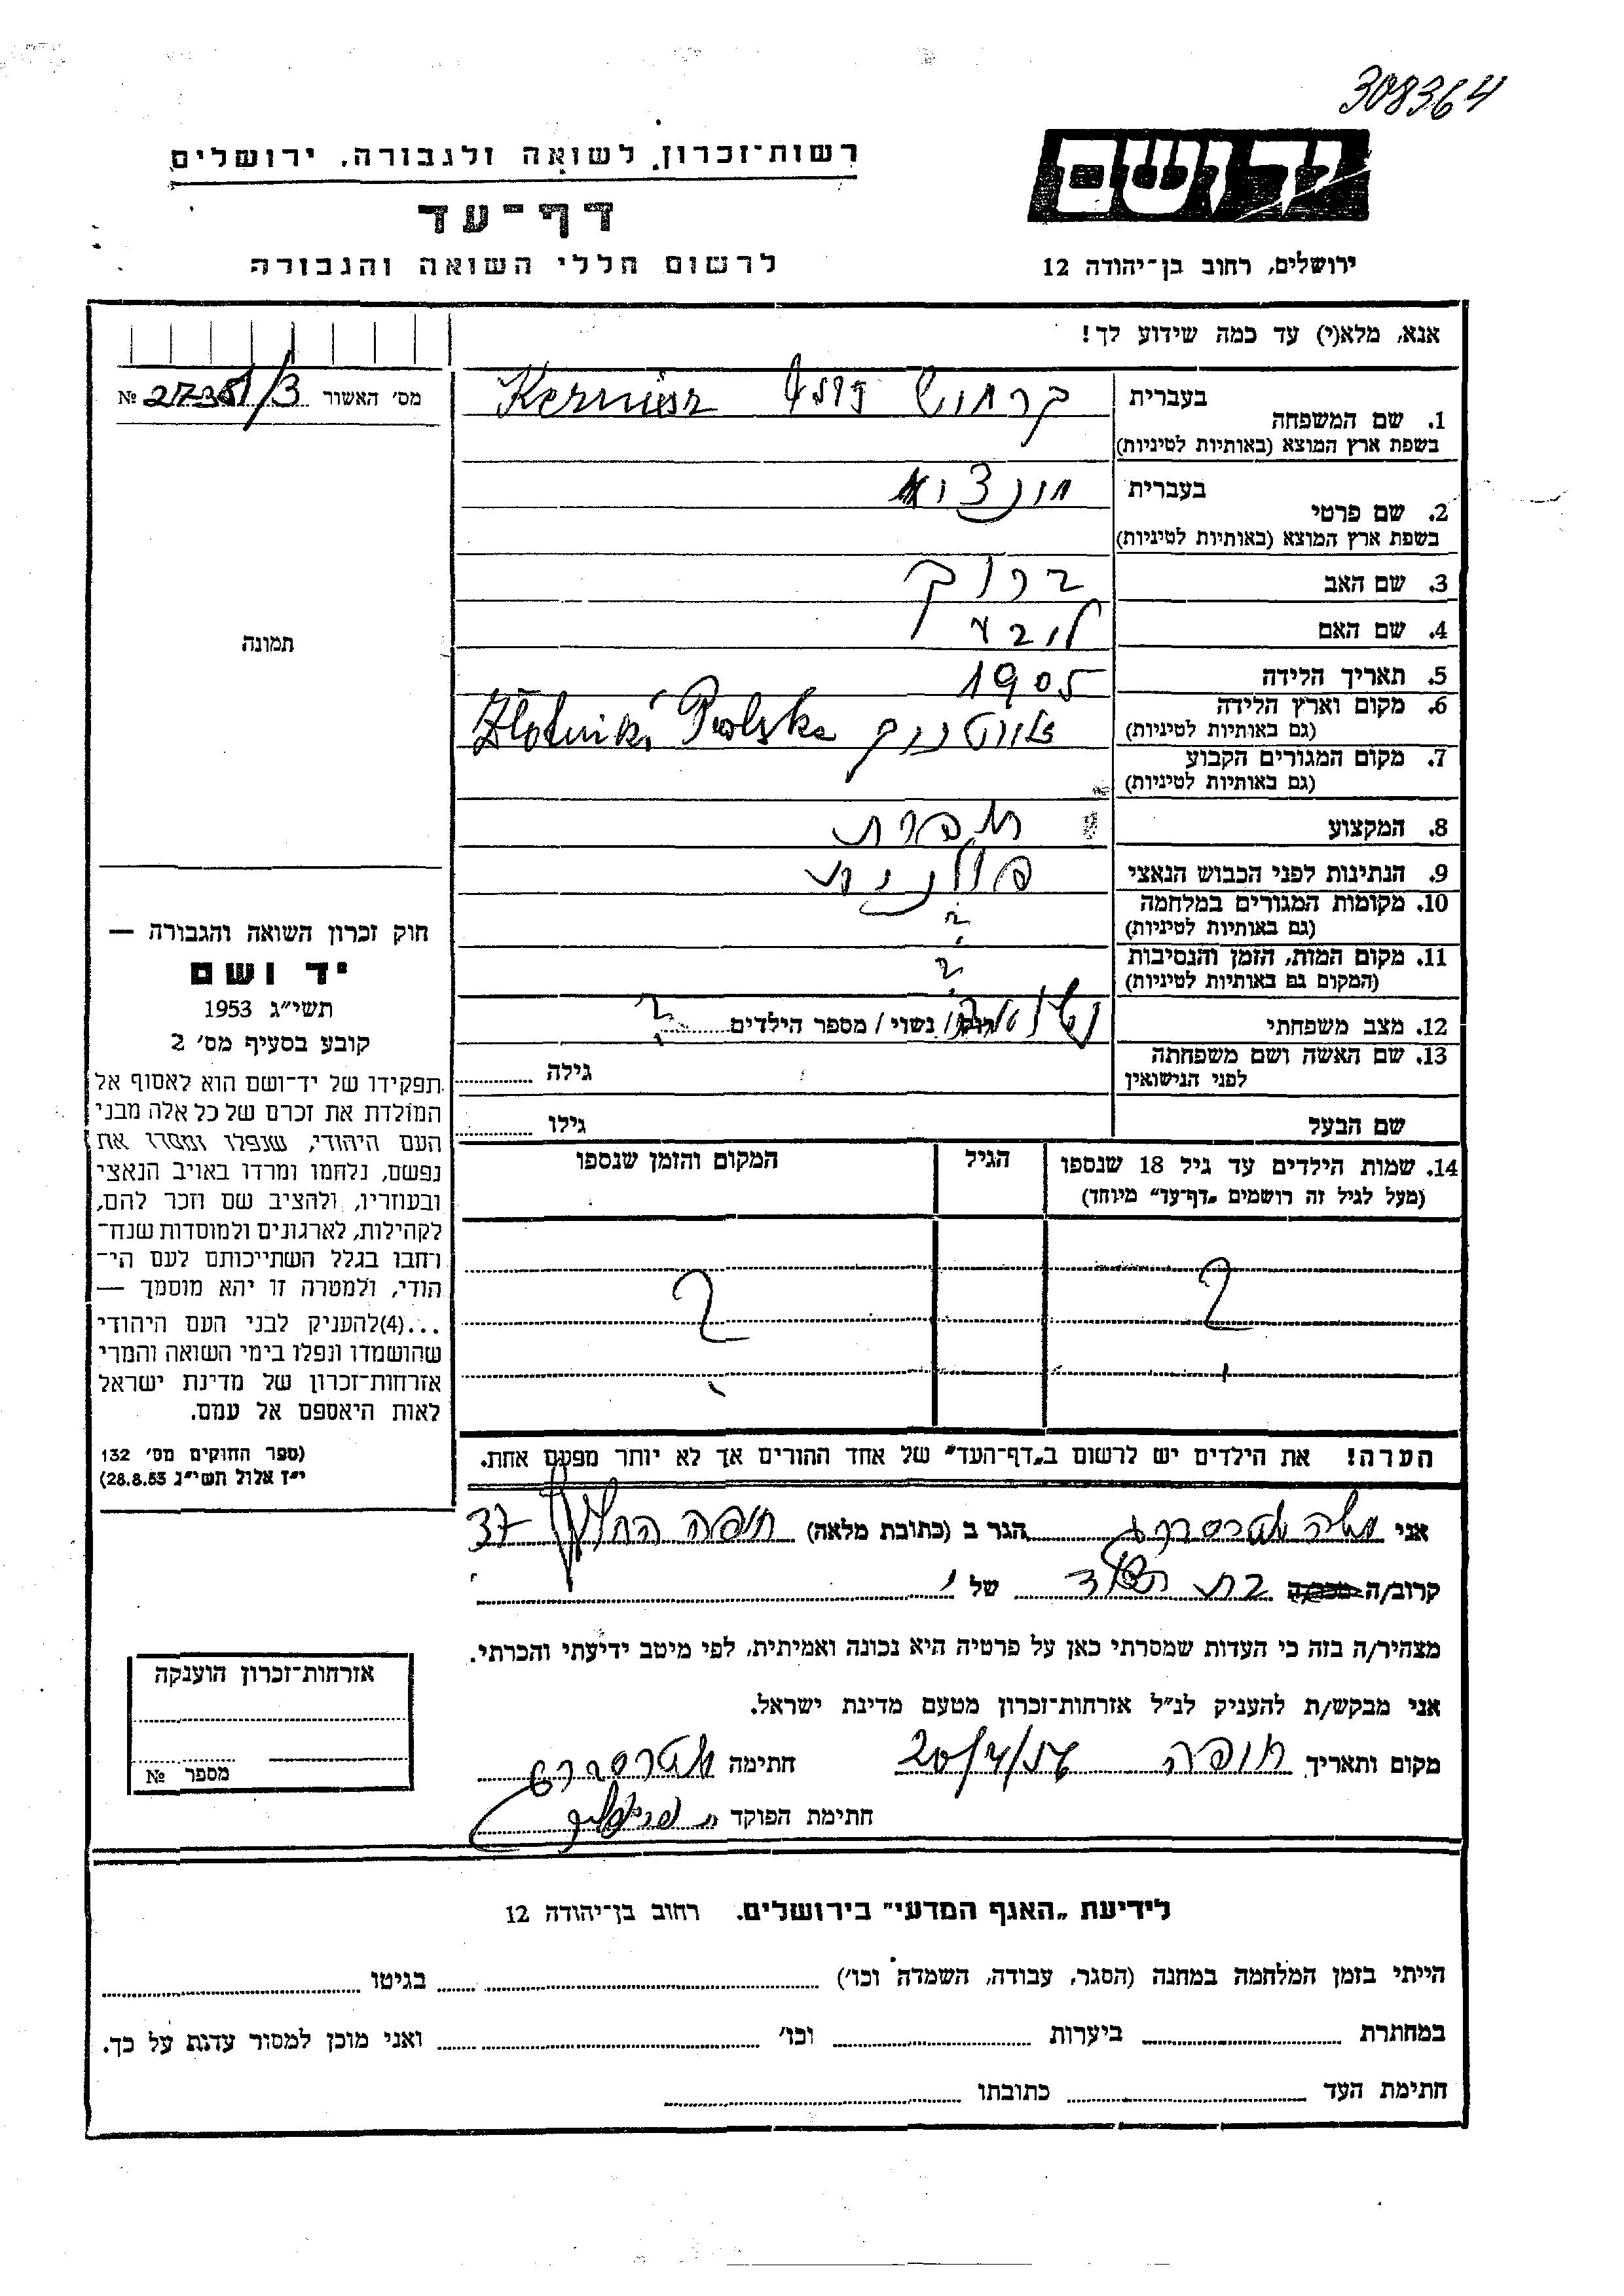 308364
יד ושם
רשות־זכרון לשואה ולגבורה, ירושלים
דף־עד
ירושלים, רחוב בן־יהודה 12
לרשום חללי השואה והגבורה
אנא, מלא(י) עד כמה שידוע לך!
מס׳ האשור № 27351/3
1. שם המשפחה
בעברית
בשפת ארץ המוצא (באותיות לטיניות)
2. שם פרטי
בעברית
בשפת ארץ המוצא (באותיות לטיניות)
3. שם האב ברוך
4. שם האם ליבע
5. תאריך הלידה 1905
6. מקום וארץ הלידה
(גם באותיות לטיניות) Polska
7. מקום המגורים הקבוע
(גם באותיות לטיניות)
8. המקצוע תופרת
9. הנתינות לפני הכבוש הנאצי פולנית
10. מקומות המגורים במלחמה ?
(גם באותיות לטיניות)
11. מקום המות, הזמן והנסיבות ?
(המקום גם באותיות לטיניות)
12. מצב משפחתי רוק/ נשוי/ מספר הילדים ?
13. שם האשה ושם משפחתה
לפני הנישואין
גילה
שם הבעל גילו
14. שמות הילדים עד גיל 18 שנספו הגיל המקום והזמן שנספו
(מעל לגיל זה רושמים „דף־עד״ מיוחד)
? ?
הערה! את הילדים יש לרשום ב„דף־העד״ של אחד ההורים אך לא יותר מפעם אחת.
תמונה
חוק זכרון השואה והגבורה —
יד ושם
תשי״ג 1953
קובע בסעיף מס׳ 2
תפקידו של יד־ושם הוא לאסוף אל
המולדת את זכרם של כל אלה מבני
העם היהודי, שנפלו ומסרו את
נפשם, נלחמו ומרדו באויב הנאצי
ובעוזריו, ולהציב שם וזכר להם,
לקהילות, לארגונים ולמוסדות שנח־
רחבו בגלל השתייכותם לעם הי־
הודי, ולמטרה זו יהא מוסמך —
...(4)להעניק לבני העם היהודי
שהושמדו ונפלו בימי השואה והמרי
אזרחות־זכרון של מדינת ישראל
לאות היאספם אל עמם.
(ספר החוקים מס׳ 132
י״ז אלול תשי״ג 28.8.53)
אני הגר ב (כתובת מלאה) חיפה החלוץ 37
קרוב/ה בת דוד של
מצהיר/ה בזה כי העדות שמסרתי כאן על פרטיה היא נכונה ואמיתית, לפי מיטב ידיעתי והכרתי.
אני מבקש/ת להעניק לנ״ל אזרחות־זכרון מטעם מדינת ישראל.
מקום ותאריך חיפה 20/4/56 חתימה
חתימת הפוקד
אזרחות־זכרון הוענקה
מספר №
לידיעת „האגף המדעי״ בירושלים. רחוב בן־יהודה 12
הייתי בזמן המלחמה במחנה (הסגר, עבודה, השמדה וכו׳) בגיטו
במחתרת ביערות וכו׳ ואני מוכן למסור עדות על כך.
חתימת העד כתובתו